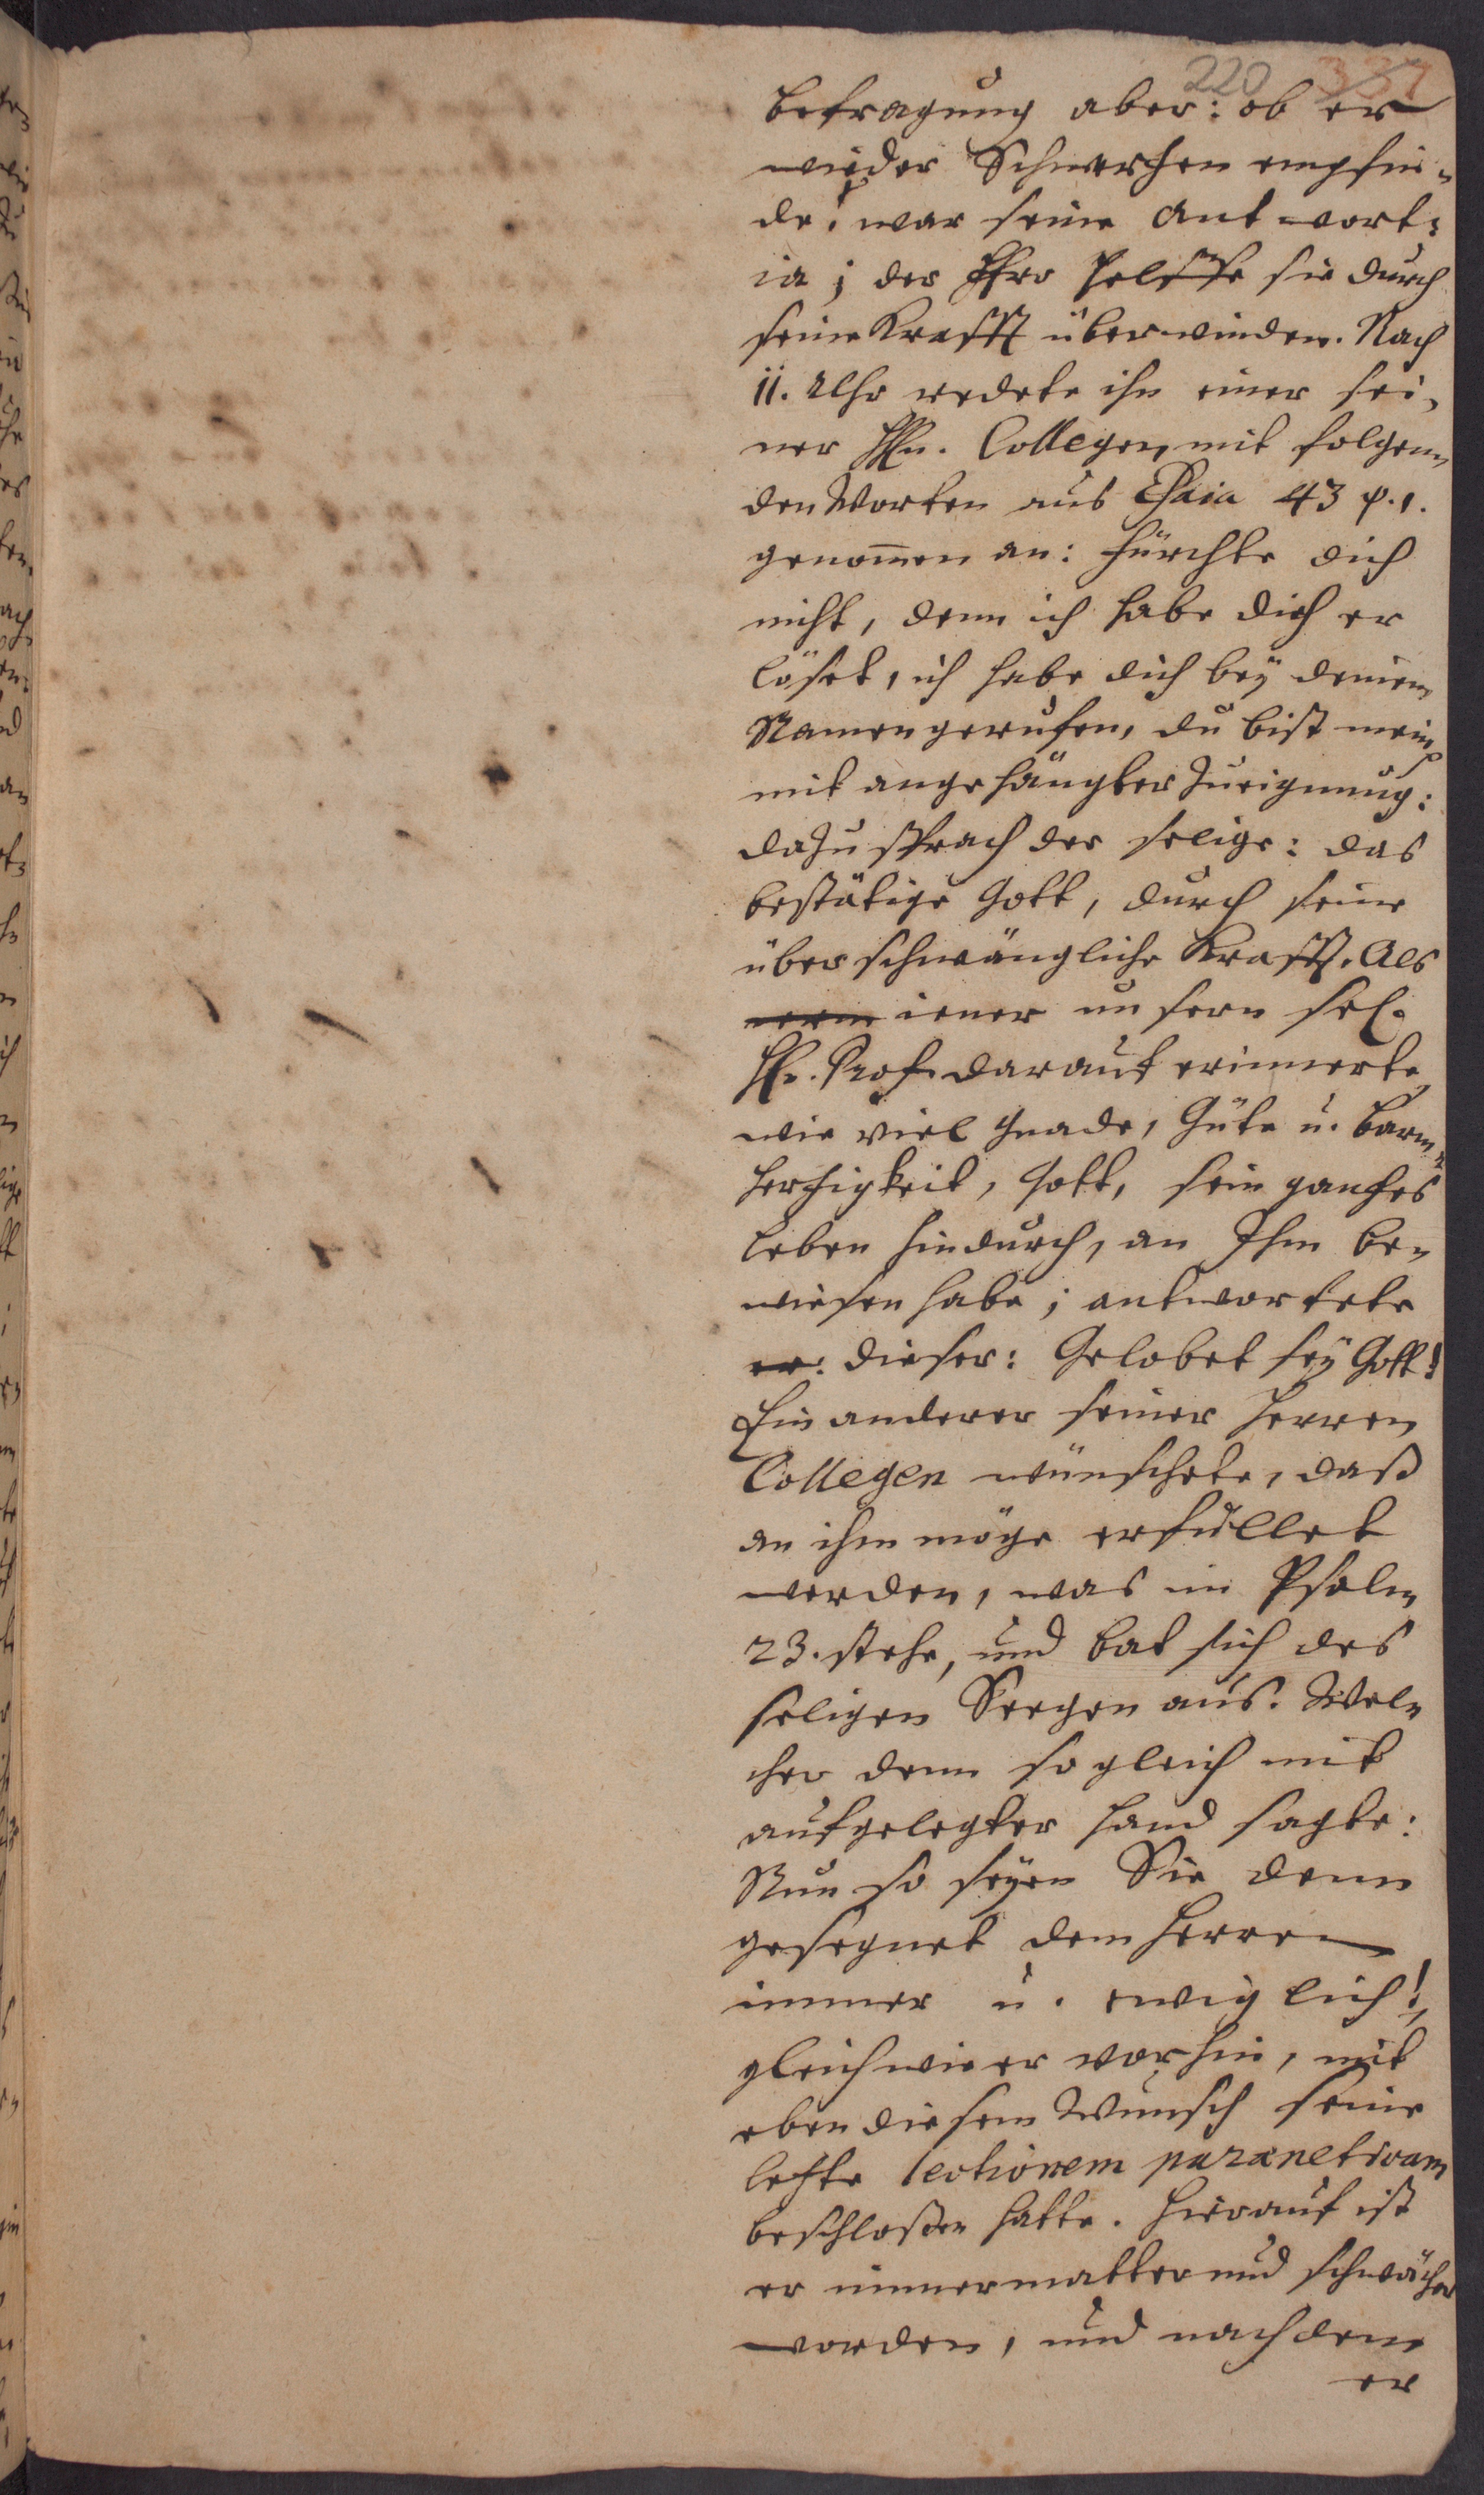 220 337
befragung aber: ob er
wieder Schmerzen empfin-
de? war seine Antwort:
ia; der Herr helffe sie durch
seine Krafft überwinden. Nach
11. Uhr redete ihn einer sei-
ner HEn. Collegen, mit folgen-
den Worten aus Esaia 43 v. 1.
genom̅en an: Fürchte dich
nicht, denn ich habe dich er
löset, ich habe dich bey deinem
Namen gerufen, du bist mein,
mit angehängter Zueignung:
dazu sprach der selige: das
bestätige Gott, durch seine
überschwängliche Krafft. Als
iener unsern sel.
HE. Prof. darauf erinnerte,
wie viel Gnade, Güte u. Barm-
hertzigkeit, Gott, sein gantzes
Leben hindurch, an Ihm be-
wiesen habe; antwortete
er: dieser: Gelobet sey Gott!
Ein anderer seiner Herren
Collegen wünschete, daß
an ihm möge erfüllet
werden, was im Psalm
23. stehe, und bat sich des
seligen Seegen aus. Wel-
cher denn so gleich mit
aufgelegter Hand sagte:
Nun so seyen Sie denn
gesegnet dem Herren
immer u. ewiglich!,
gleichwie er vorhin, mit
eben diesem Wunsch seine
letzte lectionem paræneticam
beschloßen hatte. Hierauf ist
er immer matter und schwächer
worden, und nachdem
er